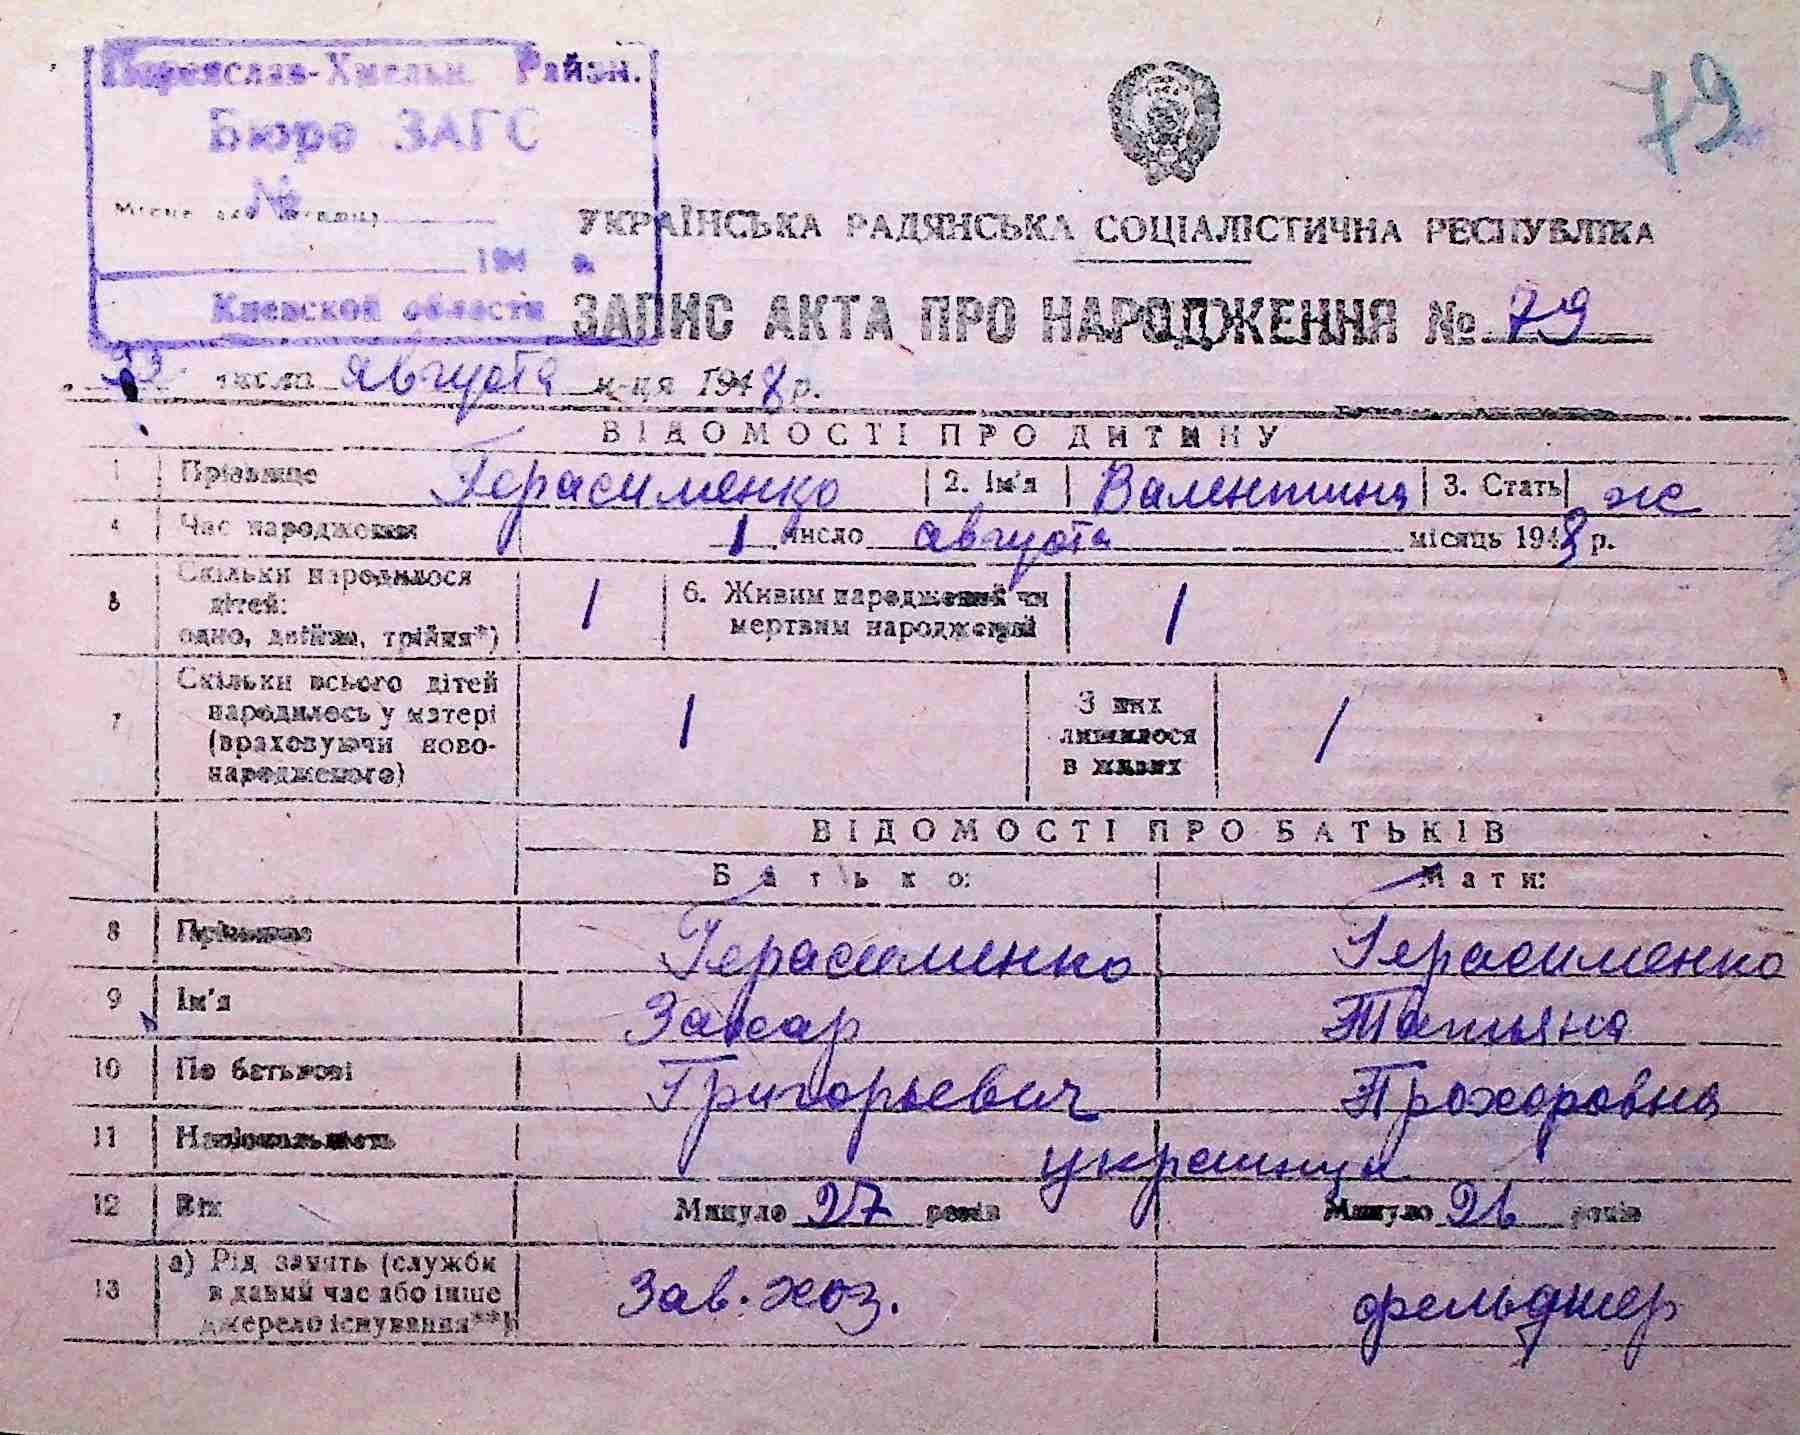 Переяслав-Хмельн. Район.
Бюро ЗАГС
№
194 р.
Киевской области
79
УКРАЇНСЬКА РАДЯНСЬКА СОЦІАЛІСТИЧНА РЕСПУБЛІКА
ЗАПИС АКТА ПРО НАРОДЖЕННЯ № 79
числа августа м-ця 1948 р.
ВІДОМОСТІ ПРО ДИТИНУ
1 Прізвище Герасименко 2. Ім'я Валентина 3. Стать ж
4 Час народження 1 число августа місяць 1948 р.
5 Скільки народилося
дітей:
одно, двійня, трійня*) 1
6. Живим народжений чи
мертвим народжений 1
7 Скільки всього дітей
народилось у матері
(враховуючи ново-
народженого) 1
З них
лишилося
в живих 1
ВІДОМОСТІ ПРО БАТЬКІВ
Батько: Мати:
8 Прізвище Герасименко Герасименко
9 Ім'я Захар Татьяна
10 По батькові Григорьевич Прохоровна
11 Національність украинцы
12 Вік Минуло 27 років Минуло 26 років
13 а) Рід занять (служби
в даний час або інше
джерело існування**) Зав. хоз. фельдшер